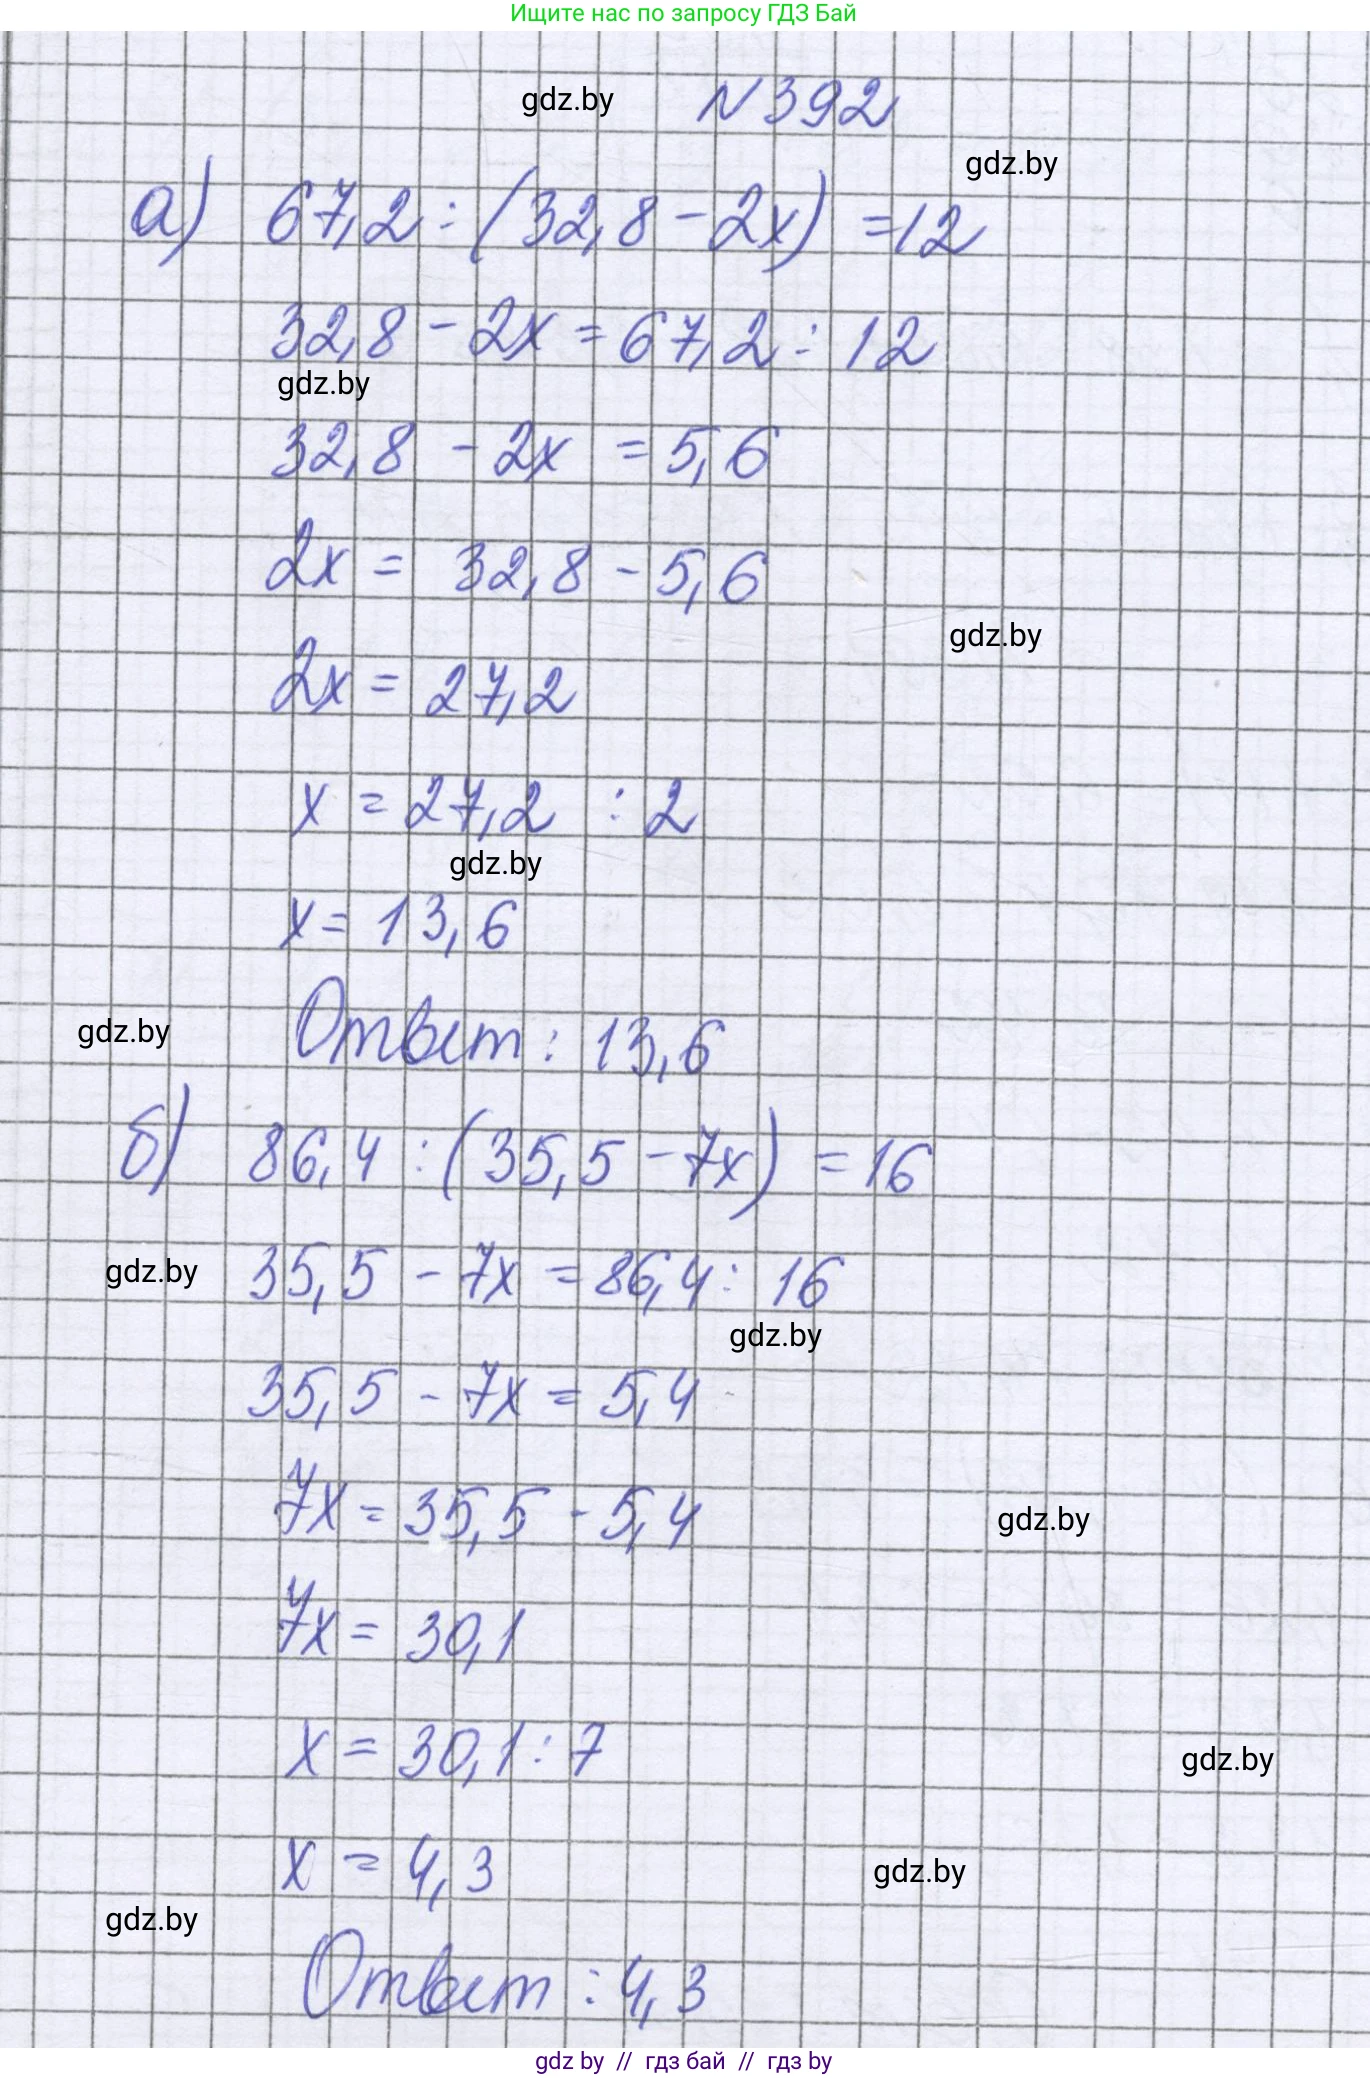 Ищите нас по запросу ГДЗ Бай
gdz.by
N392
gdz.by
а) 67,2 : (32,8 - 2x) = 12
32,8 - 2x = 67,2 : 12
gdz.by
32,8 - 2x = 5,6
2x = 32,8 - 5,6
gdz.by
2x = 27,2
x = 27,2 : 2
gdz.by
x = 13,6
gdz.by
Ответ: 13,6
б) 86,4 : (35,5 - 7x) = 16
gdz.by
35,5 - 7x = 86,4 : 16
gdz.by
35,5 - 7x = 5,4
7x = 35,5 - 5,4
gdz.by
7x = 30,1
x = 30,1 : 7
gdz.by
x = 4,3
gdz.by
gdz.by
Ответ : 4,3
gdz by // гдз бай // гдз by